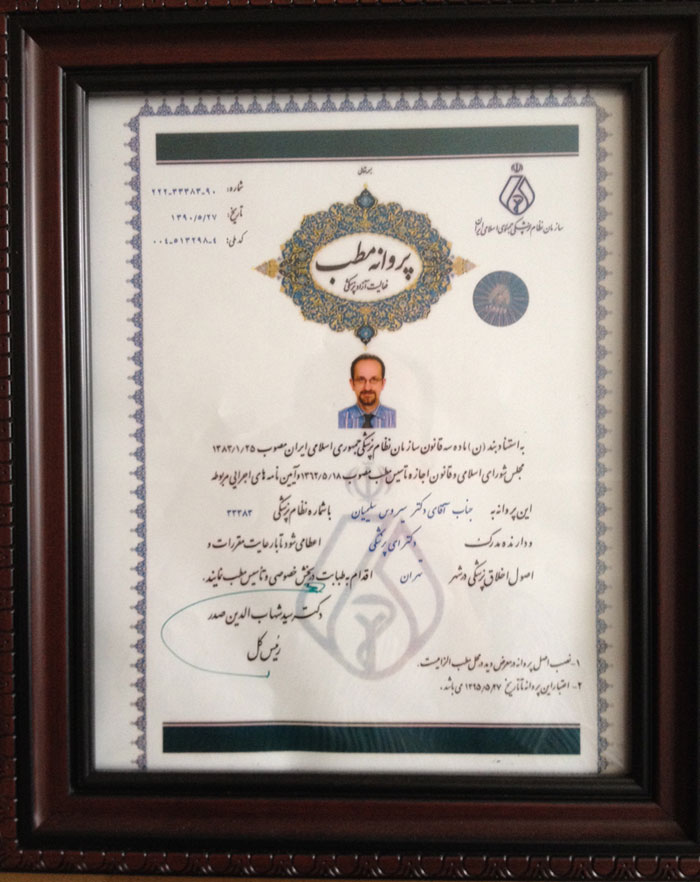 بسمه تعالی
سازمان نظام پزشکی جمهوری اسلامی ایران
شماره: ۲۲۲-۳۳۳۸۳-۹۰
تاریخ: ۱۳۹۰/۵/۲۷
کد ملی: ۰۰۴-۵۱۳۲۹۸-۴
پروانه مطب
فعالیت آزاد پزشکی
به استناد بند (ن) ماده سه قانون سازمان نظام پزشکی جمهوری اسلامی ایران مصوب ۱۳۸۳/۱/۲۵
مجلس شورای اسلامی و قانون اجازه تأسیس مطب مصوب ۱۳۶۲/۵/۱۸ و آیین نامه های اجرایی مربوطه
این پروانه به جناب آقای دکتر سیروس سلیمیان با شماره نظام پزشکی ۳۳۳۸۳
و دارنده مدرک دکترای پزشکی اعطا می شود تا با رعایت مقررات و
اصول اخلاق پزشکی در شهر تهران اقدام به طبابت در بخش خصوصی و تأسیس مطب نمایند.
دکتر سید شهاب الدین صدر
رئیس کل
۱- نصب اصل پروانه در معرض دید در محل مطب الزامیست.
۲- اعتبار این پروانه تا تاریخ ۱۳۹۵/۵/۲۷ می باشد.